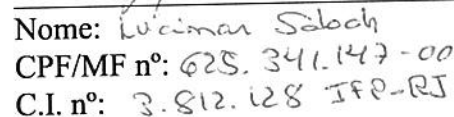 Nome: Lucimar Saloch
CPF/MF nº: 625.341.147-00
C.I. nº: 3.812.128 IFP-RJ